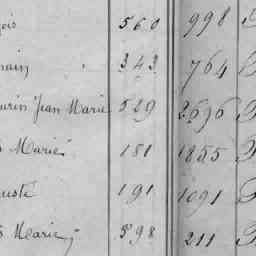 ois 560 998
ain 343 764
urin Jean Marie 529 2696
s Marie 181 1855
uste 191 1091
s Marie 598 211